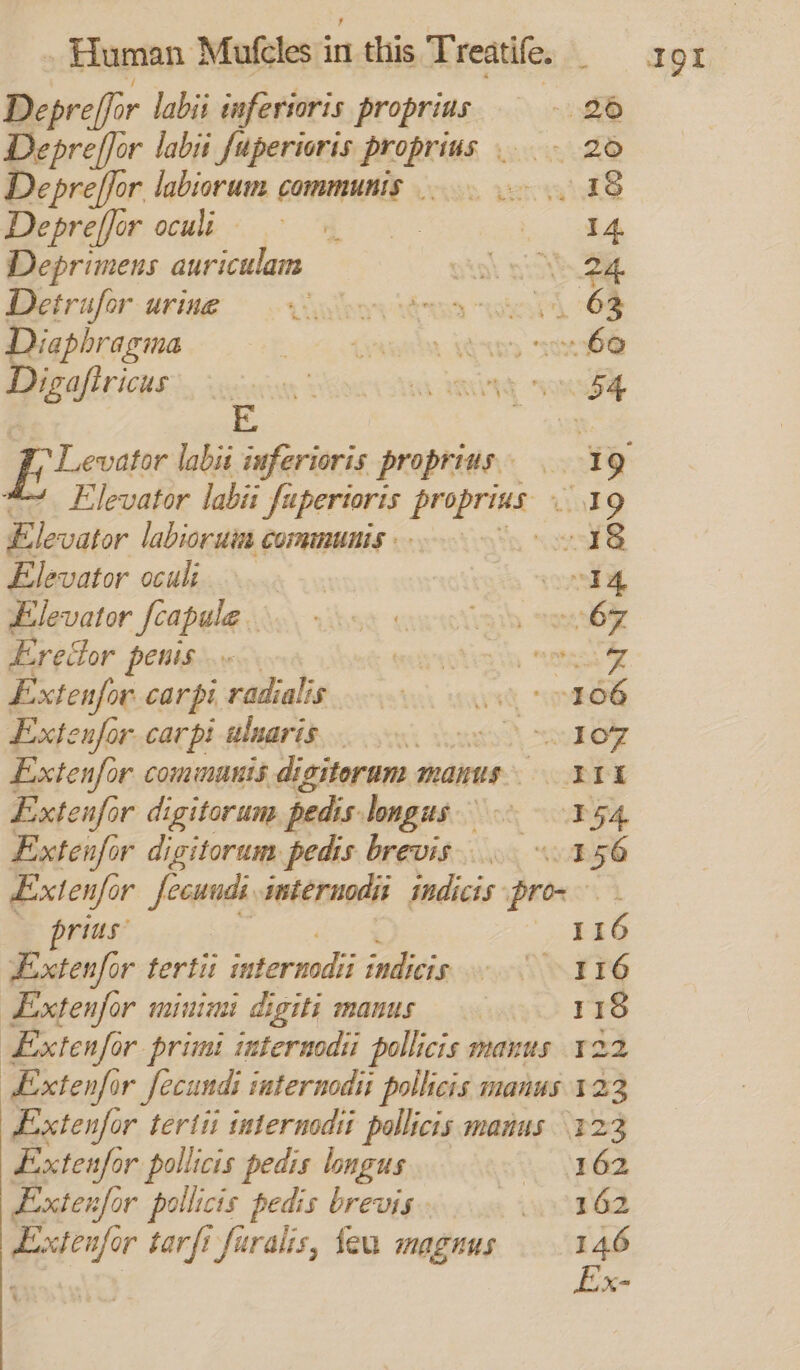 Human Muſcles in this Treatiſe. 191
Depreſſor labii inferioris proprius 20
Depreſſor labii ſuperioris proprius 20
Depreſſor labiorum communis 18
Depreſſor oculi 14
Deprimens auriculam 24
Detruſor urinæ 63
Diaphragma 60
Digaſtricus 54
E
ELevator labii inferioris proprius 19
Elevator labii ſuperioris proprius 19
Elevator labiorum communis 18
Elevator oculi 14
Elevator ſcapulæ 67
Erector penis 7
Extenſor carpi radialis 106
Extenſor carpi ulnaris 107
Extenſor communis digitorum manus 111
Extenſor digitorum pedis longus 154
Extenſor digitorum pedis brevis 156
Extenſor ſecundi internodii indicis pro-
prius 116
Extenſor tertii internodii indicis 116
Extenſor minimi digiti manus 118
Extenſor primi internodii pollicis manus 122
Extenſor ſecundi internodii pollicis manus 123
Extenſor tertii internodii pollicis manus 123
Extenſor pollicis pedis longus 162
Extenſor pollicis pedis brevis 162
Extenſor tarſi ſuralis, ſeu magnus 146
Ex-